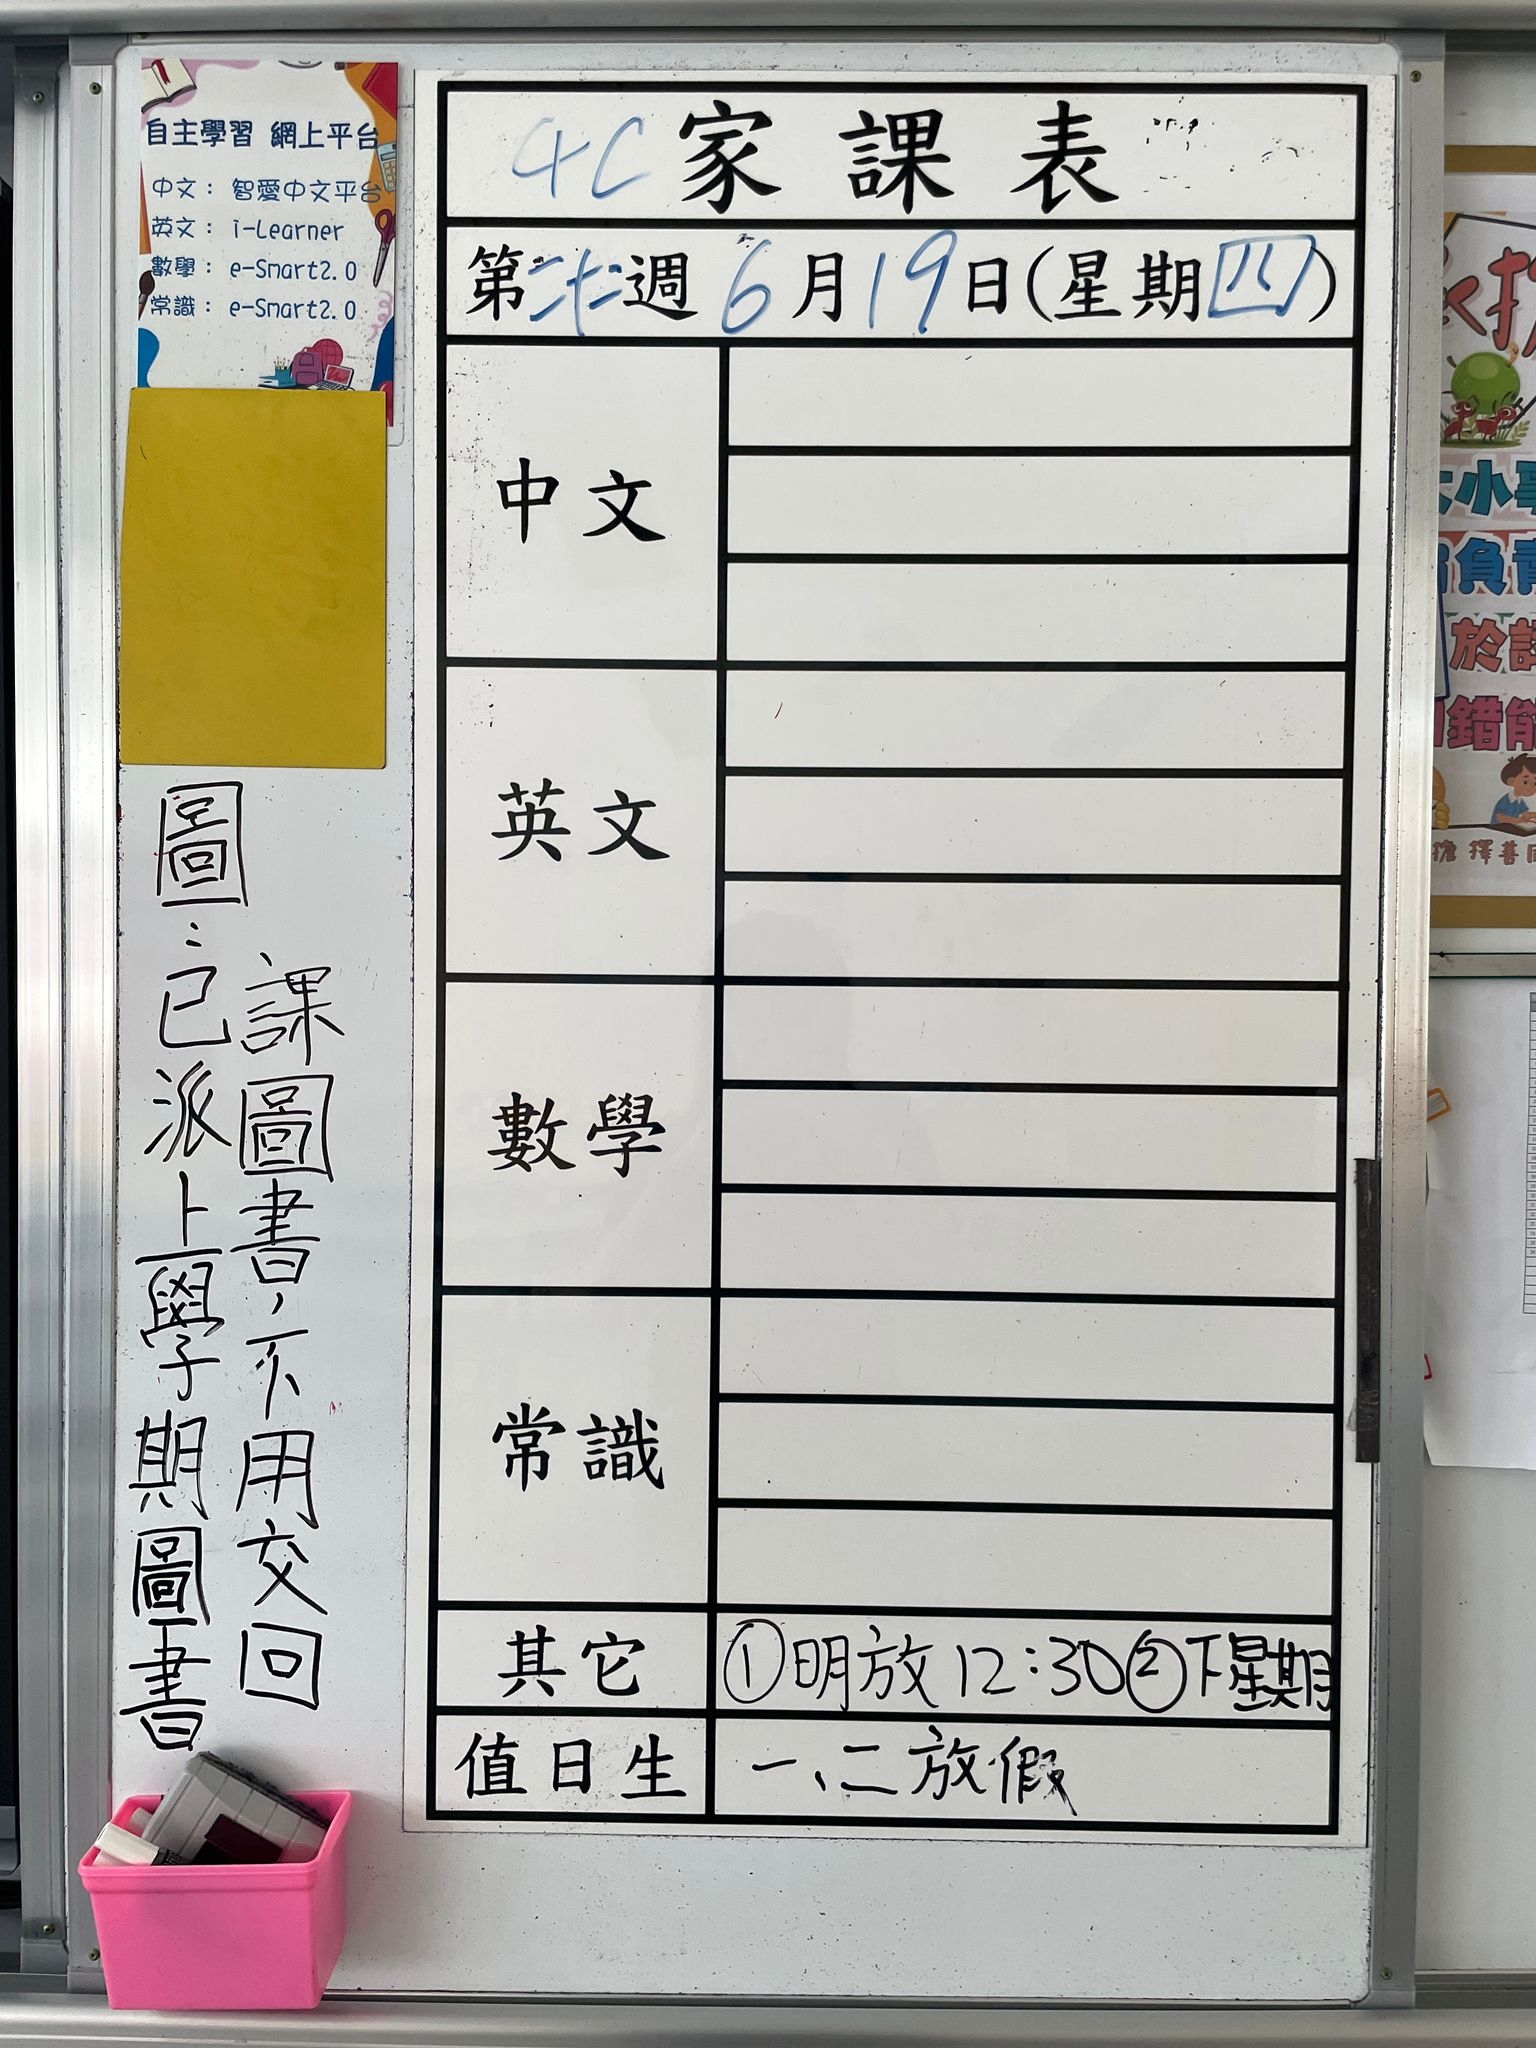 自主學習 網上平台
中文： 智愛中文平台
英文： i-Learner
數學： e-Smart2.0
常識： e-Smart2.0
4C 家課表
第二十二週 6月19日(星期四)
中文
英文
數學
常識
其它 ①明放12:30②下星期
值日生 一、二放假
圖：已派上學期圖書
課圖書，不用交回
大小事
負責
於
錯能
擇善